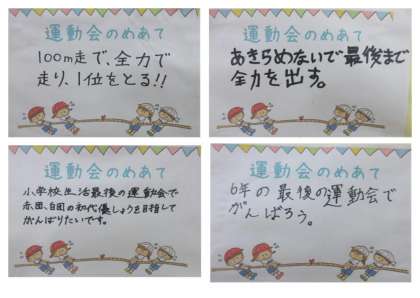 運動会のめあて
100m走で、全力で
走り、1位をとる!!
運動会のめあて
あきらめないで最後まで
全力を出す。
運動会のめあて
小学校生活最後の運動会で
赤団、白団の初代優しょうを目指して
がんばりたいです。
運動会のめあて
6年の最後の運動会で
がんばろう。